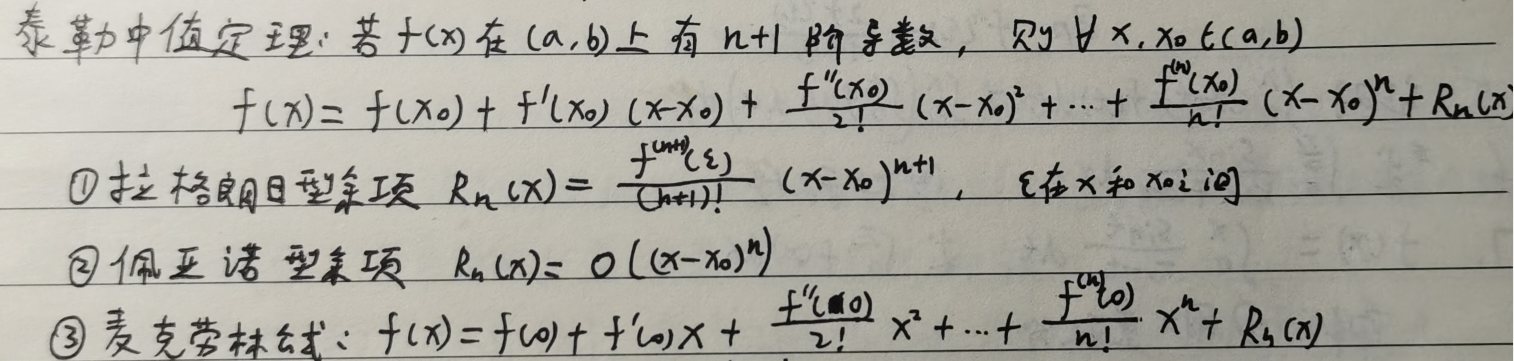 泰勒中值定理:若f(x)在(a,b)上有n+1阶导数,则∀x,x₀∈(a,b)
f(x)=f(x₀)+f'(x₀)(x-x₀)+f''(x₀)/2!(x-x₀)²+…+f⁽ⁿ⁾(x₀)/n!(x-x₀)ⁿ+Rₙ(x)
①拉格朗日型余项 Rₙ(x)=f⁽ⁿ⁺¹⁾(ξ)/(n+1)!(x-x₀)ⁿ⁺¹,ξ在x和x₀之间
②佩亚诺型余项 Rₙ(x)=o((x-x₀)ⁿ)
③麦克劳林公式:f(x)=f(0)+f'(0)x+f''(0)/2!x²+…+f⁽ⁿ⁾(0)/n!xⁿ+Rₙ(x)